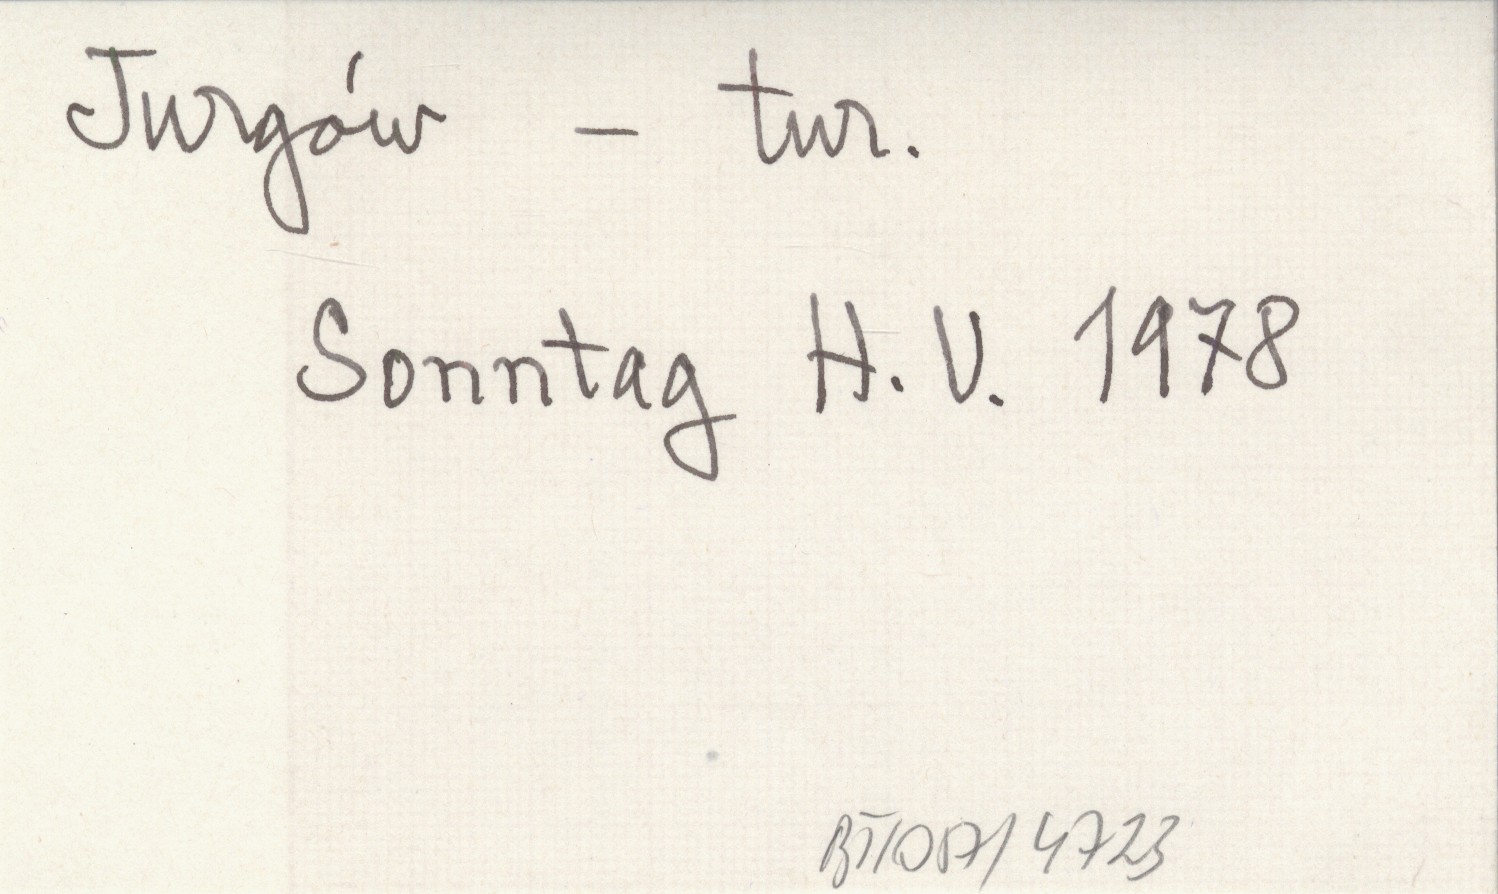 Jurgów – tur.
Sonntag H. V. 1978
BT/OB7/4723